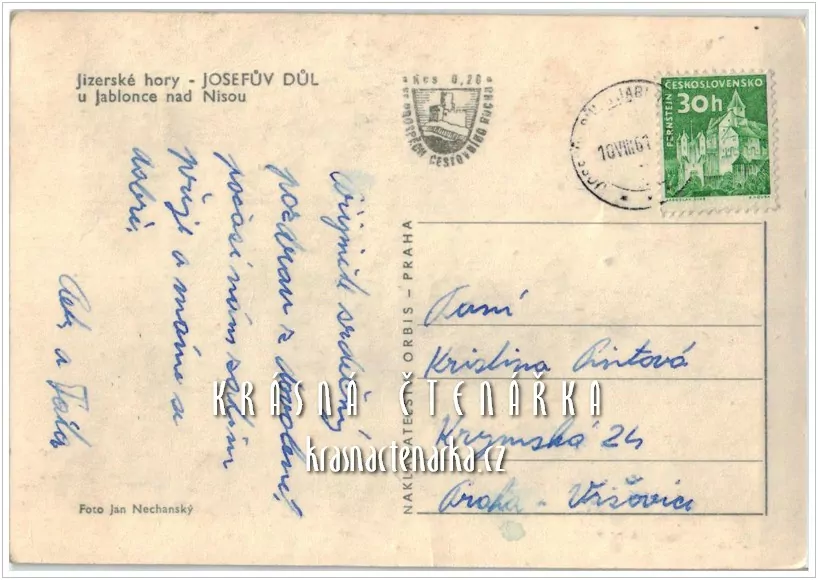 Jizerské hory - JOSEFŮV DŮL
u Jablonce nad Nisou
* Kčs 0,20 *
CESTOVNÍHO RUCHU
ČESKOSLOVENSKO
30h
PERNŠTEJN
10.VIII.61
Přijměte srdečný
pozdrav z dovolené!
počasí nám zatím
přeje a máme se
dobře.
a
NAKLADATELSTVÍ ORBIS – PRAHA
Paní
Kristina
Krymská 24
Praha - Vršovice
KRÁSNÁ ČTENÁŘKA
krasnactenarka.cz
Foto Jan Nechanský